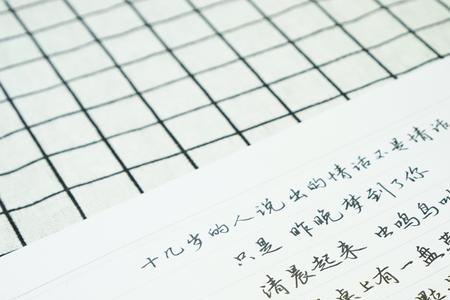 十几岁的人说出的情话不是情话
只是 昨晚梦到了你
清晨起来 虫鸣鸟叫
桌上有一盘